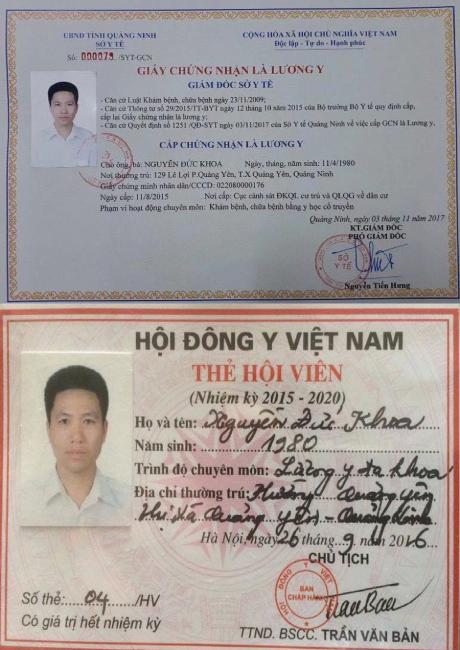 UBND TỈNH QUẢNG NINH
SỞ Y TẾ
CỘNG HÒA XÃ HỘI CHỦ NGHĨA VIỆT NAM
Độc lập - Tự do - Hạnh phúc
Số: 000079 /SYT-GCN
GIẤY CHỨNG NHẬN LÀ LƯƠNG Y
GIÁM ĐỐC SỞ Y TẾ
- Căn cứ Luật Khám bệnh, chữa bệnh ngày 23/11/2009;
- Căn cứ Thông tư số 29/2015/TT-BYT ngày 12 tháng 10 năm 2015 của Bộ trưởng Bộ Y tế quy định cấp,
cấp lại Giấy chứng nhận là lương y;
- Căn cứ Quyết định số 1251 /QĐ-SYT ngày 03/11/2017 của Sở Y tế Quảng Ninh về việc cấp GCN là Lương y,
CẤP CHỨNG NHẬN LÀ LƯƠNG Y
Cho ông, bà: NGUYỄN ĐỨC KHOA Ngày, tháng, năm sinh: 11/4/1980
Nơi thường trú: 129 Lê Lợi P.Quảng Yên, T.X Quảng Yên, Quảng Ninh
Giấy chứng minh nhân dân/CCCD: 022080000176
Ngày cấp: 11/8/2015 Nơi cấp: Cục cảnh sát ĐKQL cư trú và QLQG về dân cư
Phạm vi hoạt động chuyên môn: Khám bệnh, chữa bệnh bằng y học cổ truyền
Quảng Ninh, ngày 03 tháng 11 năm 2017
KT.GIÁM ĐỐC
PHÓ GIÁM ĐỐC
SỞ
Y TẾ
Nguyễn Tiến Hưng
HỘI ĐÔNG Y VIỆT NAM
THẺ HỘI VIÊN
(Nhiệm kỳ 2015 - 2020)
Họ và tên: Nguyễn Đức Khoa
Năm sinh: 1980
Trình độ chuyên môn: Lương y đa khoa
Địa chỉ thường trú: Phường Quảng Yên
Thị xã Quảng Yên - Quảng Ninh
Hà Nội, ngày 26 tháng 9 năm 2016
CHỦ TỊCH
HỘI ĐÔNG Y VIỆT NAM
BAN
CHẤP HÀNH
Số thẻ: 04 /HV
Có giá trị hết nhiệm kỳ
TTND. BSCC. TRẦN VĂN BẢN